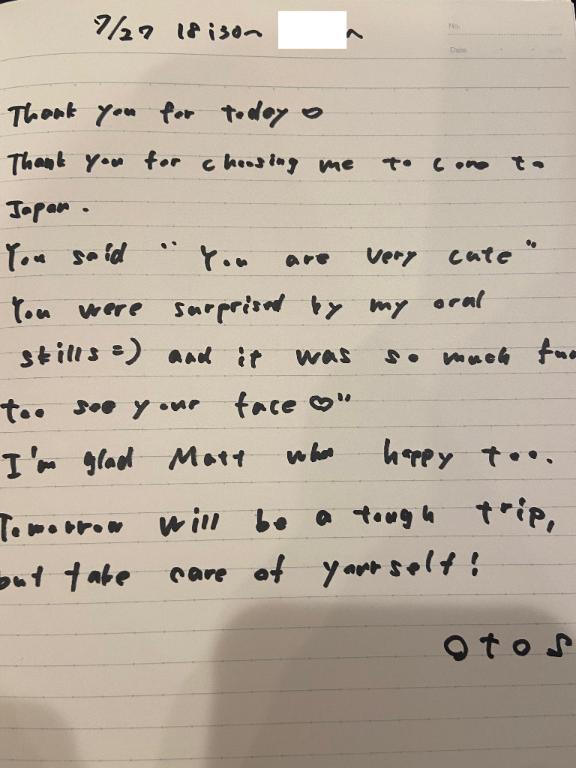 7/27 18:30~ ~
No.
Date
Thank you for today♡
Thank you for choosing me to come to
Japan.
You said "You are very cute"
You were surprised by my oral
skills=) and it was so much fun
too see your face♡"
I'm glad Matt who happy too.
Tomorrow will be a tough trip,
but take care of yourself!